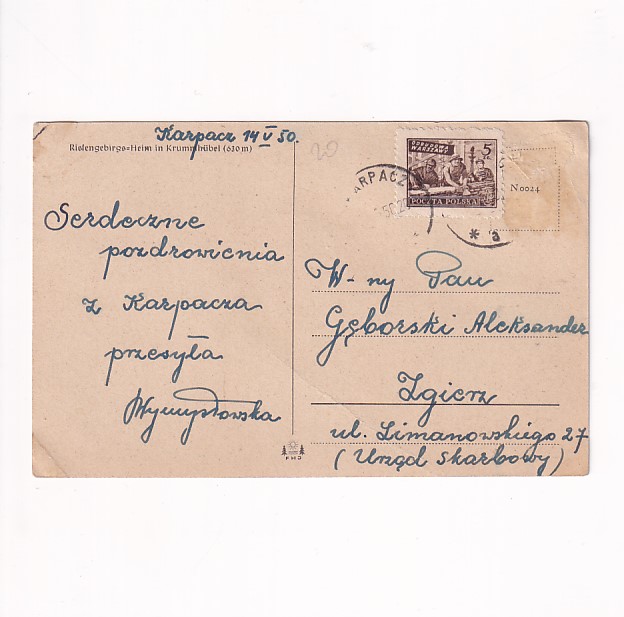 Karpacz 14 V 50.
Riesengebirgs=Heim in Krummhübel (630 m)
20
ODBUDOWA
WARSZAWY
5
ZŁ
POCZTA POLSKA
KARPACZ
N 0024
* a
Serdeczne
pozdrowienia
z Karpacza
przesyła
Wymysłowska
W-ny Pan
Gęborski Aleksander
Zgierz
ul. Limanowskiego 27
(Urząd Skarbowy)